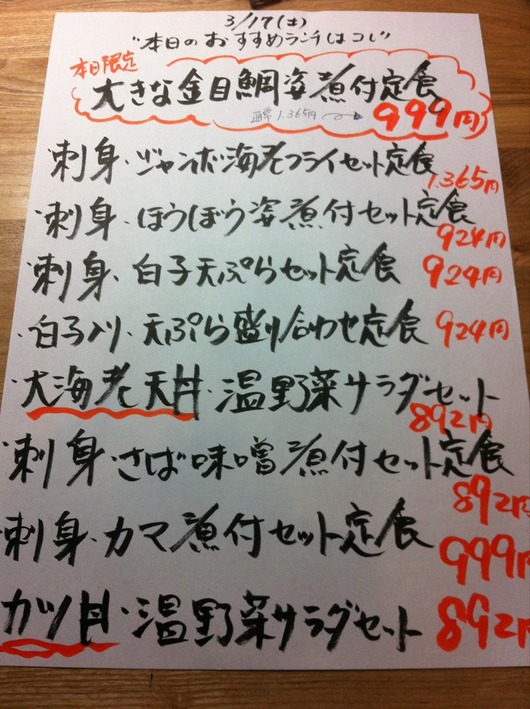 3/17(土)
"本日のおすすめランチはコレ"
本日限定
大きな金目鯛姿煮付定食
通常1.365円
999円
・刺身・ジャンボ海老フライセット定食
1.365円
・刺身・ほうぼう姿煮付セット定食
924円
・刺身・白子天ぷらセット定食 924円
・白子入り・天ぷら盛り合わせ定食 924円
・大海老天丼・温野菜サラダセット
892円
・刺身・さば味噌煮付セット定食
892円
・刺身・カマ煮付セット定食
999円
カツ丼・温野菜サラダセット 892円